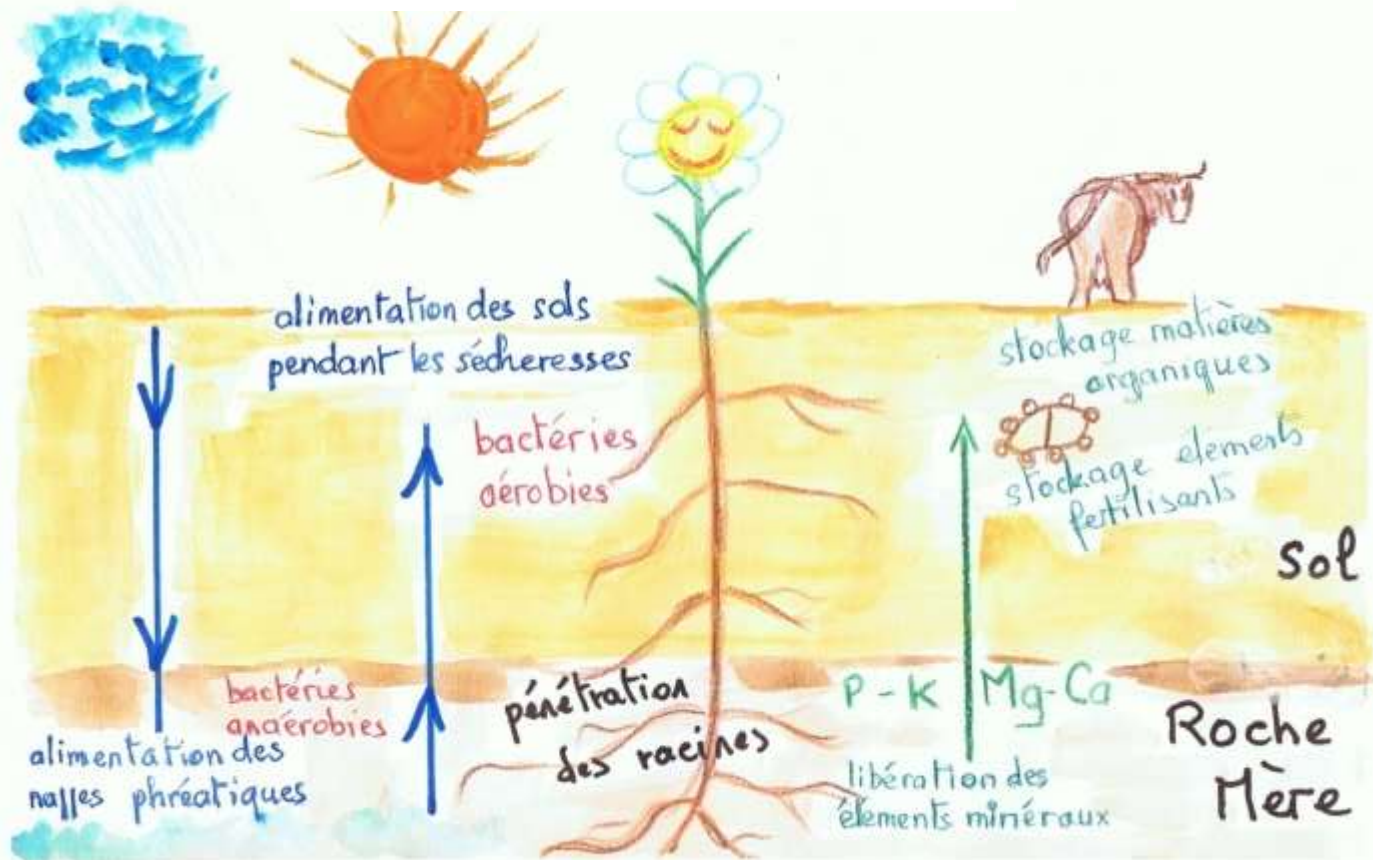 alimentation des sols
pendant les sécheresses
stockage matières
organiques
bactéries
aérobies
stockage éléments
fertilisants
Sol
bactéries
anaérobies
pénétration
des racines
P - K
Mg-Ca
Roche
Mère
alimentation des
nappes phréatiques
libération des
éléments minéraux